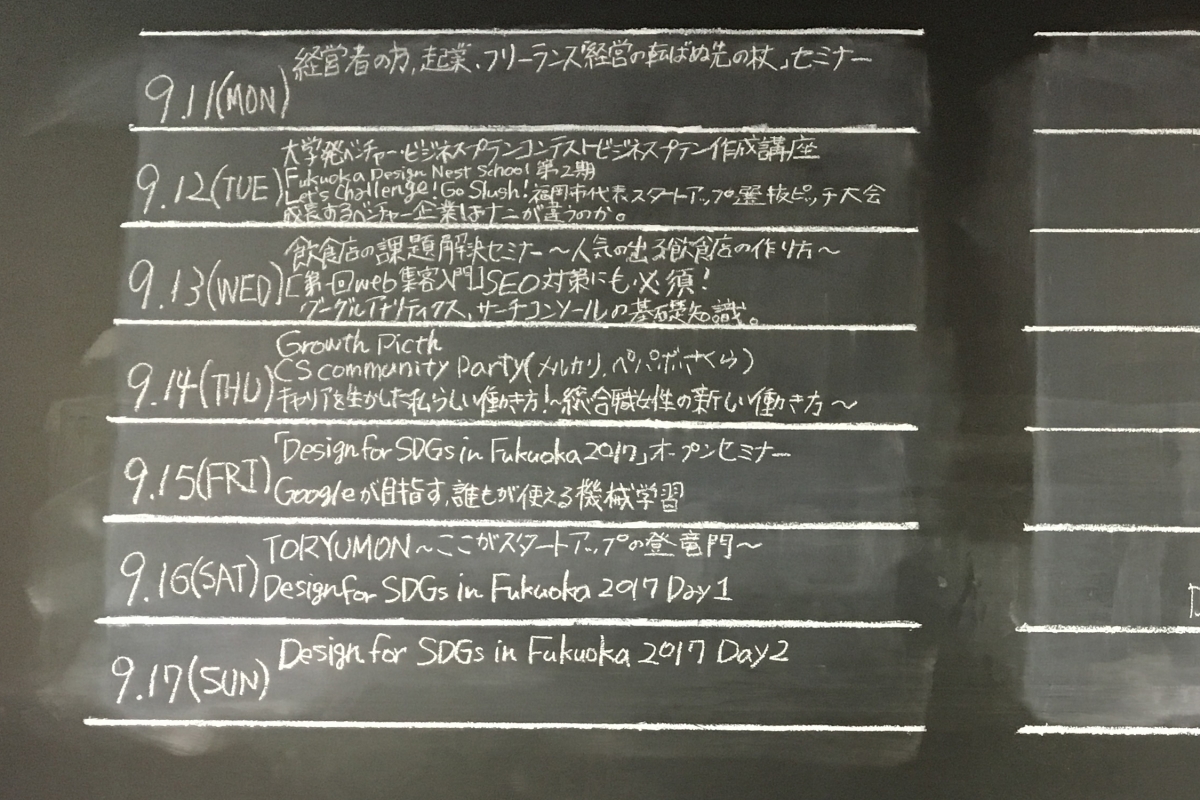 9.11(MON)
経営者の方,起業、フリーランス「経営の転ばぬ先の杖」セミナー
9.12(TUE)
大学発ベンチャー・ビジネスプランコンテストビジネスプラン作成講座
Fukuoka Design Nest School 第2期
Let's Challenge! Go Slush! 福岡市代表スタートアップ選抜ピッチ大会
成長するベンチャー企業はナニが違うのか。
9.13(WED)
飲食店の課題解決セミナー〜人気の出る飲食店の作り方〜
[第一回web集客入門]SEO対策にも必須!
グーグルアナリティクス、サーチコンソールの基礎知識。
9.14(THU)
Growth Picth
CS community Party(メルカリ、ペパボ、さくら)
キャリアを生かした私らしい働き方!〜総合職女性の新しい働き方〜
9.15(FRI)
「Design for SDGs in Fukuoka 2017」オープンセミナー
Googleが目指す,誰もが使える機械学習
9.16(SAT)
TORYUMON〜ここがスタートアップの登竜門〜
Design for SDGs in Fukuoka 2017 Day1
9.17(SUN)
Design for SDGs in Fukuoka 2017 Day2